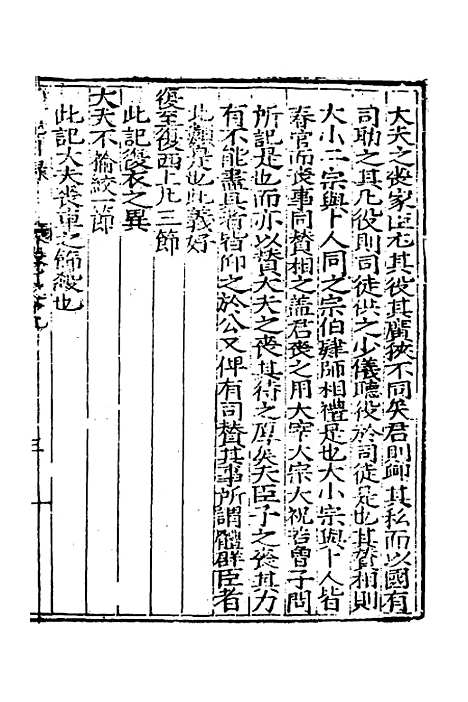 大夫之喪家臣尤其役其廣狹不同矣君則卹其私而以國有
司助之其凡役則司徒供之少儀聽役於司徒是也其贊相則
大小二宗與卜人同之宗伯肆師相禮是也大小宗與卜人皆
春官而喪事同贊相之蓋君喪之用大宰大宗大祝若曾子問
所記是也而亦以贊大夫之喪其待之厚矣夫臣子之喪其力
有不能盡具者皆仰之於公又俾有司贊其事所謂體群臣者
此類是也此義好
復至復西上凡三節
此記復衣之異
大夫不揄絞一節
此記大夫喪車之飾殺也